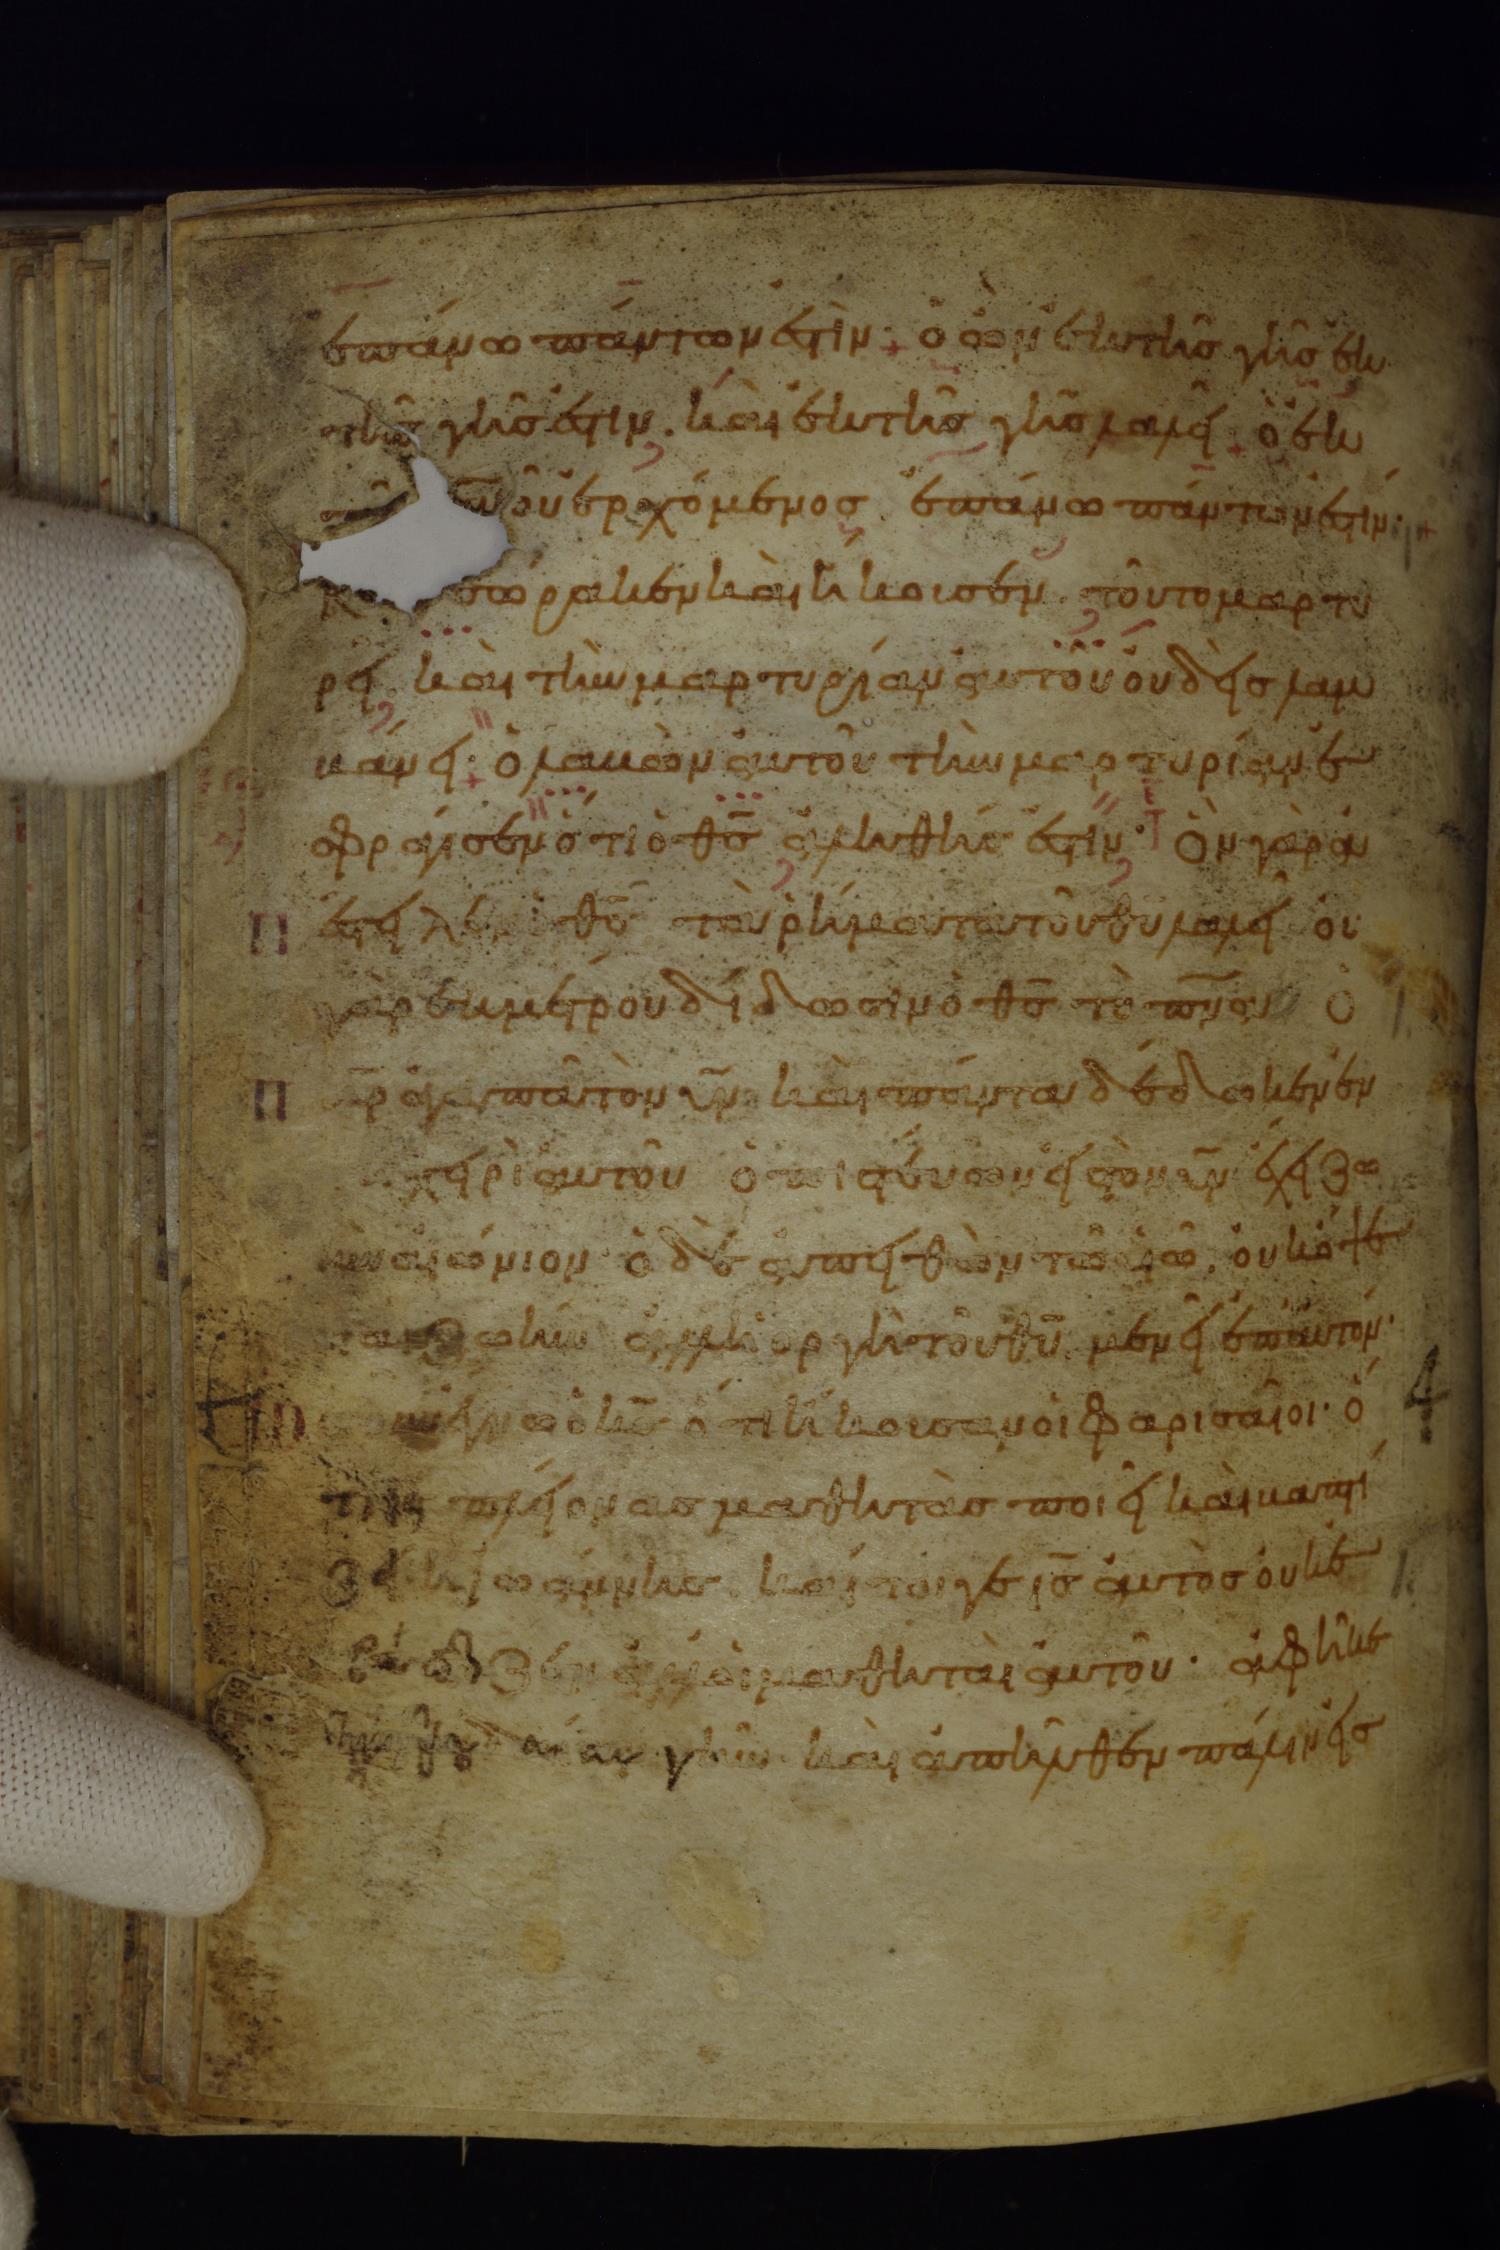 ἐπάνω πάντων ἐστὶν· ὁ ὢν ἐκ τῆς γῆς ἐκ
τῆς γῆς ἐστιν. καὶ ἐκ τῆς γῆς λαλεῖ· ὁ ἐκ
οὐνοῦ ἐρχόμενος ἐπάνω πάντων ἐστίν·
ἑώρακεν καὶ ἤκουσεν. τοῦτο μαρτυ
ρεῖ. καὶ τὴν μαρτυρίαν αὐτοῦ οὐδεὶς λαμ
βάνει· ὁ λαβὼν αὐτοῦ τὴν μαρτυρίαν ἐ
σφράγισεν ὅτι ὁ θς ἀληθής ἐστιν· Ὃν γὰρ ἀ
πέστειλεν ὁ θς τὰ ῥήματα τοῦ θυ λαλεῖ οὐ
γὰρ ἐκ μέτρου δίδωσιν ὁ θς τὸ πνα Ὁ
πηρ ἀγαπᾶ τὸν υν καὶ πάντα δέδωκεν ἐν
χειρὶ αὐτοῦ ὁ πιστεύων εἰς τὸν υν ἔχει ζω
ὴν αἰώνιον ὁ δὲ ἀπειθῶν τῶ υω. οὐκ ὄψε
ται ζωήν ἀλλ' ἡ ὀργὴ τοῦ θυ μένει ἐπ' αὐτόν·
ἔγνω ὁ κς ὅτι ἤκουσαν οἱ φαρισαῖοι· ὅ
τι ις πλείονας μαθητὰς ποιεῖ καὶ βαπτί
ζει ἢ ιωάννης. καίτοιγε ις αὐτὸς οὐκ ἐ
βάπτιζεν ἀλλ' οἱ μαθηταὶ αὐτοῦ· ἀφῆκε
τὴν ἰουδαίαν γῆν καὶ ἀπῆλθεν πάλιν εἰς
4